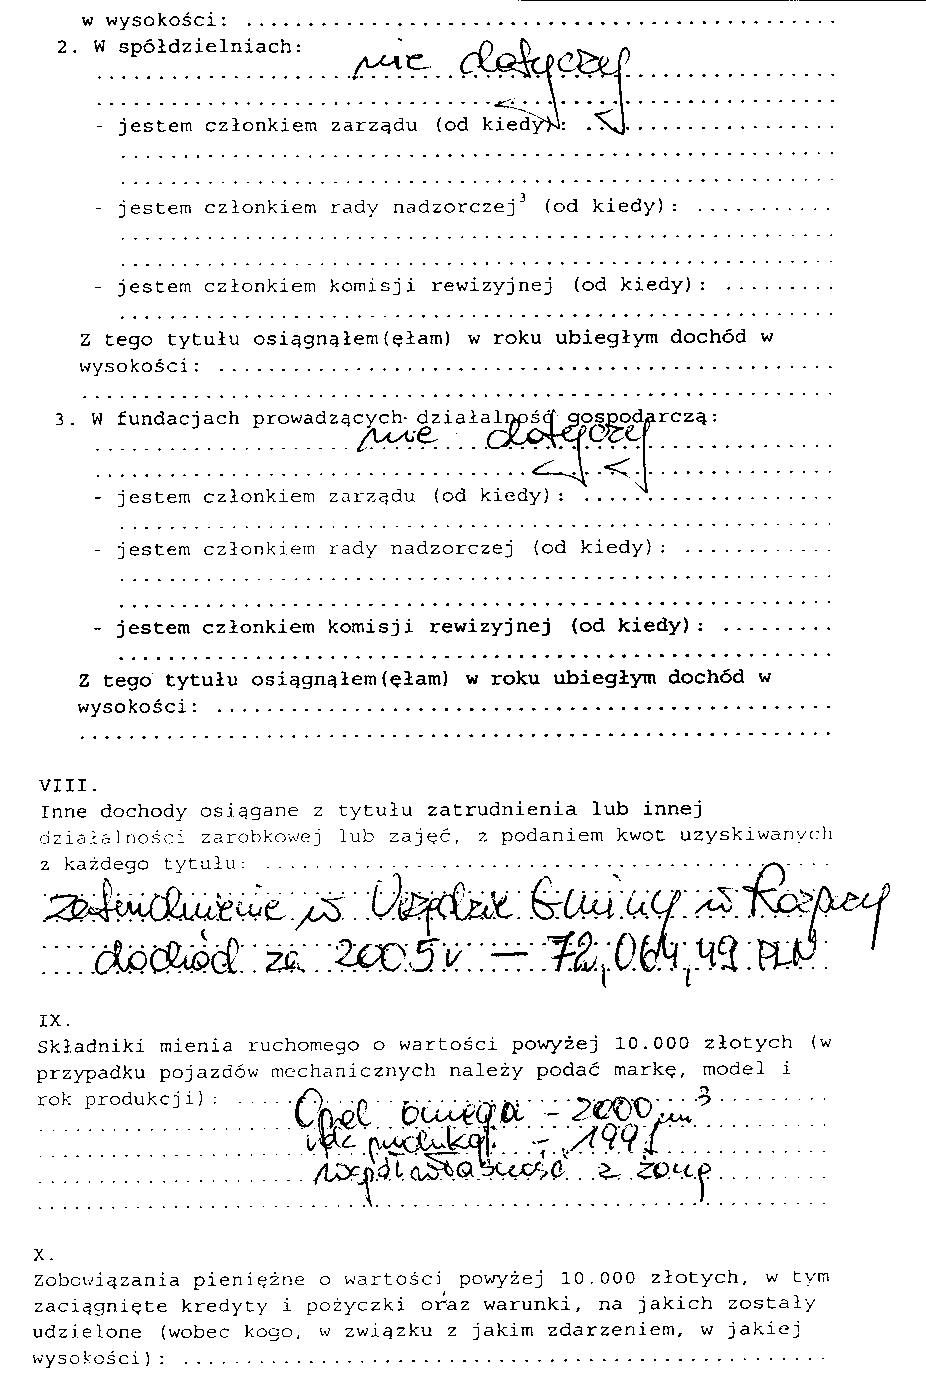 w wysokości: ................................................
2. W spółdzielniach:
nie dotyczy
- jestem członkiem zarządu (od kiedy): ....................
- jestem członkiem rady nadzorczej³ (od kiedy): ...........
- jestem członkiem komisji rewizyjnej (od kiedy): .........
Z tego tytułu osiągnąłem(ęłam) w roku ubiegłym dochód w
wysokości: ..................................................
3. W fundacjach prowadzących działalność gospodarczą:
nie dotyczy
- jestem członkiem zarządu (od kiedy): .....................
- jestem członkiem rady nadzorczej (od kiedy): ............
- jestem członkiem komisji rewizyjnej (od kiedy): .........
Z tego tytułu osiągnąłem(ęłam) w roku ubiegłym dochód w
wysokości: ..................................................
VIII.
Inne dochody osiągane z tytułu zatrudnienia lub innej
działalności zarobkowej lub zajęć, z podaniem kwot uzyskiwanych
z każdego tytułu: ..............................................
zatrudnienie w Urzędzie Gminy w Rozprzy
dochód za 2005 r – 72,064,49 PLN
IX.
Składniki mienia ruchomego o wartości powyżej 10.000 złotych (w
przypadku pojazdów mechanicznych należy podać markę, model i
rok produkcji): .....
Opel omega - 2000 cm³
rok produkcji - 1991
współwłasność z żoną
X.
Zobowiązania pieniężne o wartości powyżej 10.000 złotych, w tym
zaciągnięte kredyty i pożyczki oraz warunki, na jakich zostały
udzielone (wobec kogo, w związku z jakim zdarzeniem, w jakiej
wysokości): .....................................................